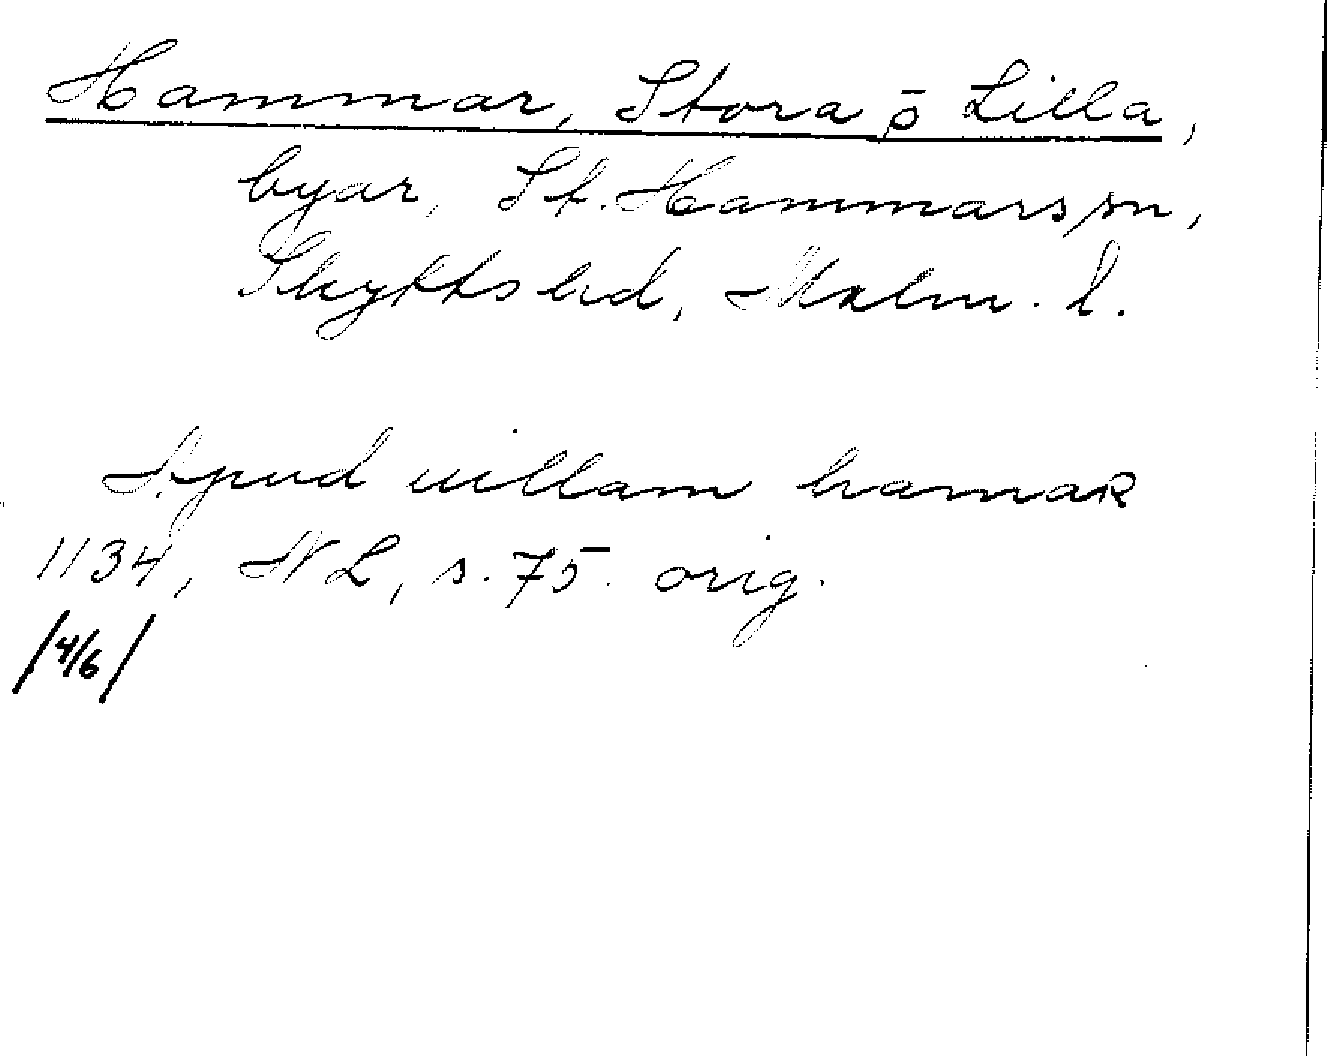 Hammar, Stora o Lilla,
byar, St. Hammars sn,
Skytts hd, Malm. l.
Apud uillam hamaR
1134, NL, s. 75. orig.
/4/6/